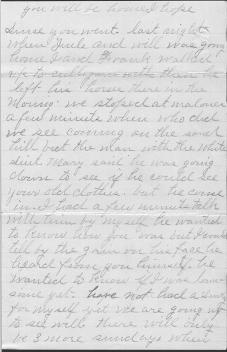 you will be home I hope
Since you went. last night
when Jule and will was going
home I and Frank walked
up to with them he
left his horse there in the
we stoped at
a few minute when who did
we see coming on the sand
hill but the man with the white
suit Mary said he was going
down to see if he could see
your old clothes. but he come
in I had a few minute talk
with him by myself he wanted
to know how you was but I could
tell by the grin on his face he
heard from you himself. he
wanted to know if I was
yet. have not had a
for myself yet we are going up
to see will there will only
be 3 more sundays when